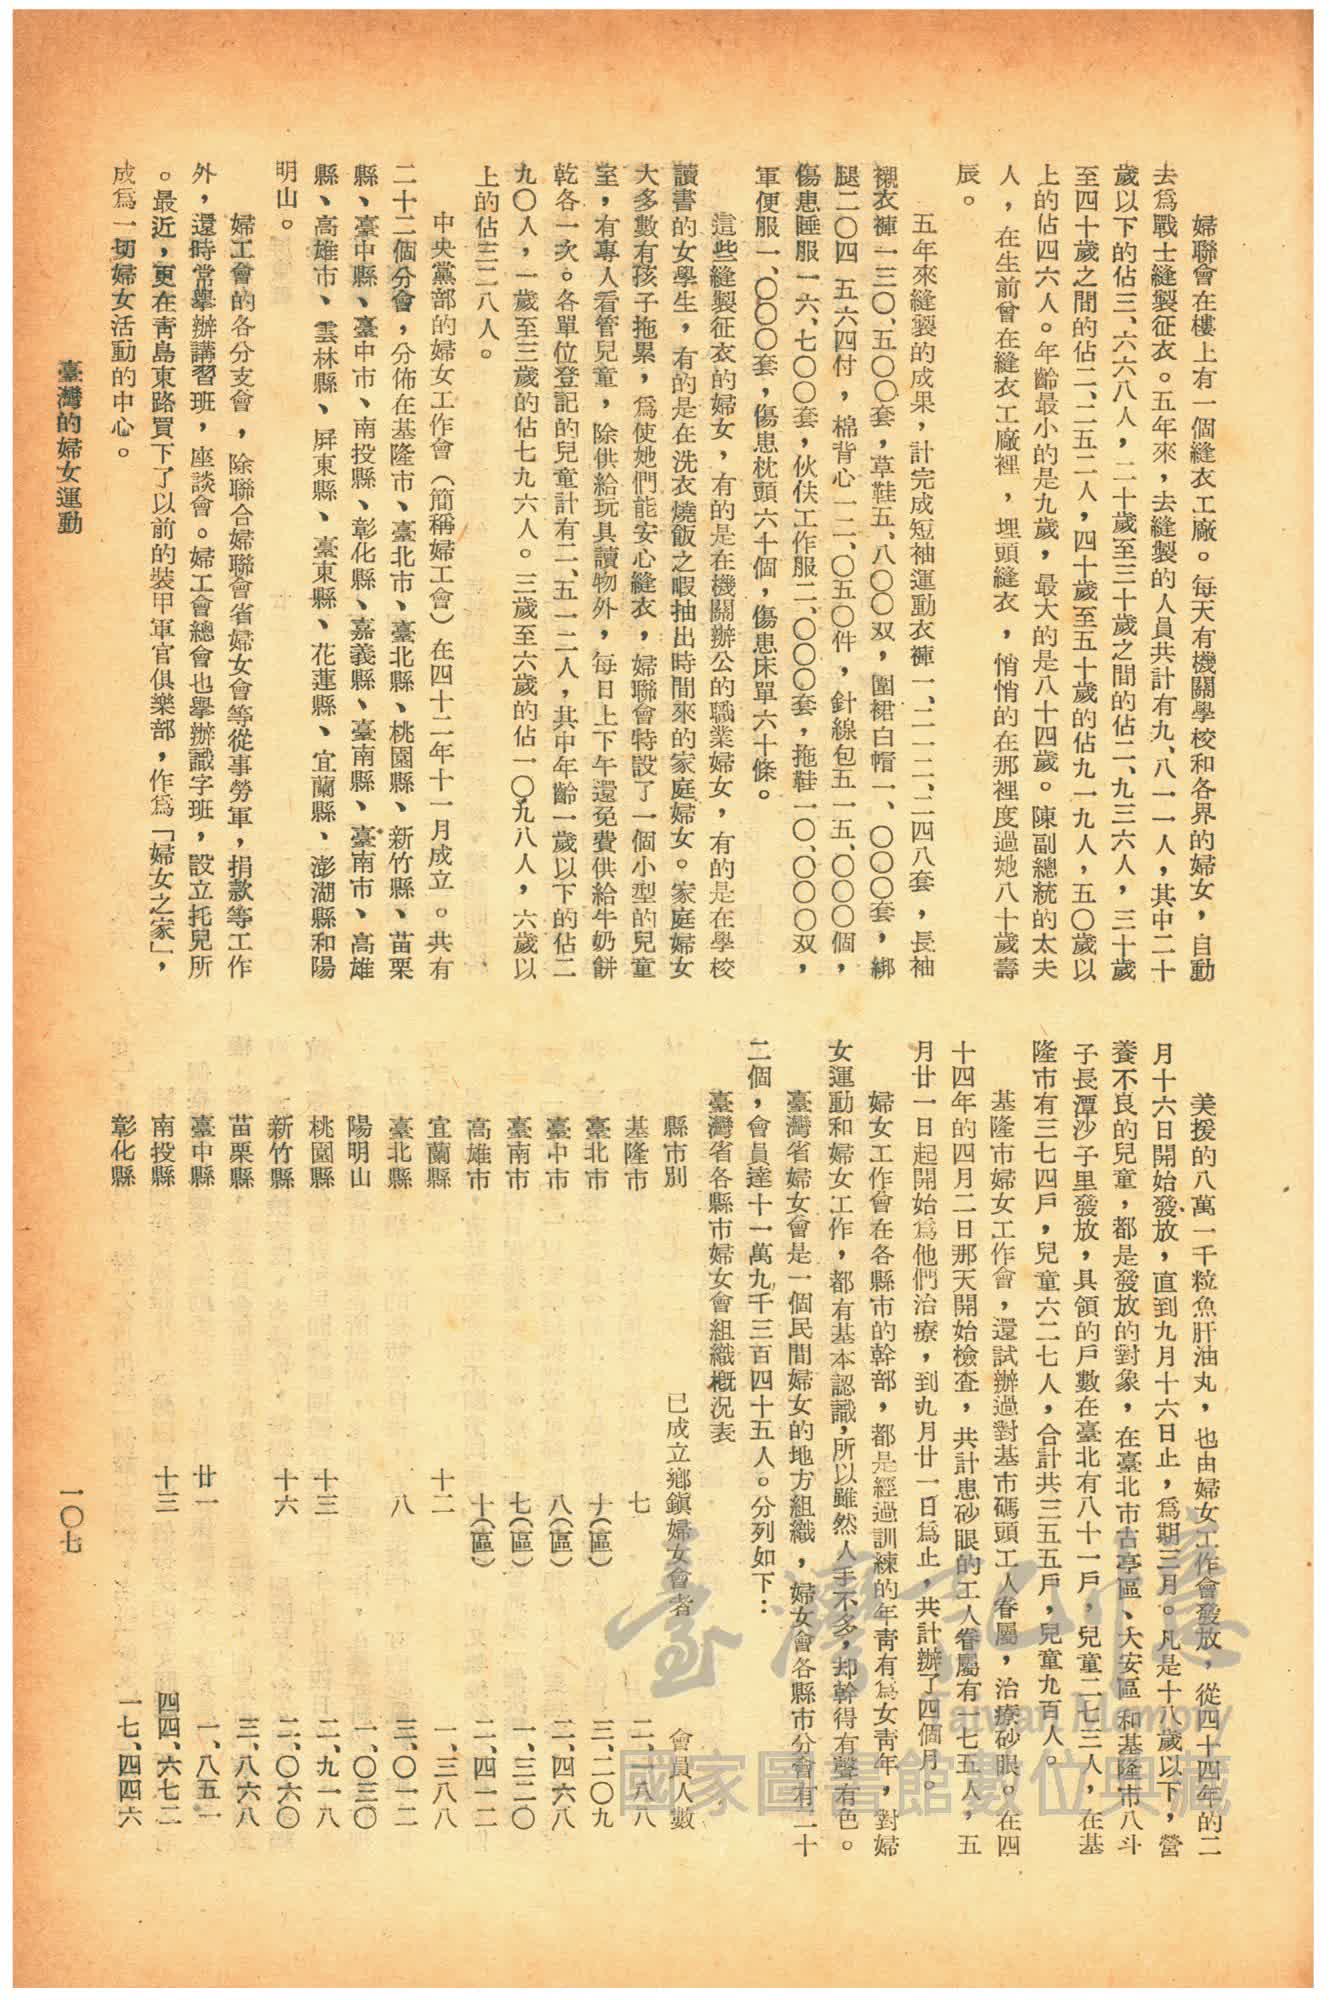 婦聯會在樓上有一個縫衣工廠。每天有機關學校和各界的婦女，自動
去爲戰士縫製征衣。五年來，去縫製的人員共計有九、八一一人，其中二十
歲以下的佔三、六六八人，二十歲至三十歲之間的佔二、九三六人，三十歲
至四十歲之間的佔二、二五二人，四十歲至五十歲的佔九一九人，五〇歲以
上的佔四六人。年齡最小的是九歲，最大的是八十四歲。陳副總統的太夫
人，在生前曾在縫衣工廠裡，埋頭縫衣，悄悄的在那裡度過她八十歲壽
辰。
五年來縫製的成果，計完成短袖運動衣褲一、二一二、二四八套，長袖
襯衣褲一三〇、五〇〇套，草鞋五、八〇〇双，圍裙白帽一、〇〇〇套，綁
腿二〇四 五六四付，棉背心一二、〇五〇件，針線包五一五、〇〇〇個，
傷患睡服一六、七〇〇套，伙伕工作服二、〇〇〇套，拖鞋一〇、〇〇〇双，
軍便服一、〇〇〇套，傷患枕頭六十個，傷患床單六十條。
這些縫製征衣的婦女，有的是在機關辦公的職業婦女，有的是在學校
讀書的女學生，有的是在洗衣燒飯之暇抽出時間來的家庭婦女。家庭婦女
大多數有孩子拖累，爲使她們能安心縫衣，婦聯會特設了一個小型的兒童
室，有專人看管兒童，除供給玩具讀物外，每日上下午還免費供給牛奶餅
乾各一次。各單位登記的兒童計有二、五一二人，其中年齡一歲以下的佔二
九〇人，一歲至三歲的佔七九六人。三歲至六歲的佔一〇九八人，六歲以
上的佔三二八人。
中央黨部的婦女工作會（簡稱婦工會）在四十二年十一月成立。共有
二十二個分會，分佈在基隆市、臺北市、臺北縣、桃園縣、新竹縣、苗栗
縣、臺中縣、臺中市、南投縣、彰化縣、嘉義縣、臺南縣、臺南市、高雄
縣、高雄市、雲林縣、屏東縣、臺東縣、花蓮縣、宜蘭縣、澎湖縣和陽
明山。
婦工會的各分支會，除聯合婦聯會省婦女會等從事勞軍，捐款等工作
外，還時常舉辦講習班，座談會。婦工會總會也舉辦識字班，設立托兒所
。最近，更在靑島東路買下了以前的裝甲軍官俱樂部，作爲「婦女之家」，
成爲一切婦女活動的中心。
臺灣的婦女運動
美援的八萬一千粒魚肝油丸，也由婦女工作會發放，從四十四年的二
月十六日開始發放，直到九月十六日止，爲期三月。凡是十八歲以下，營
養不良的兒童，都是發放的對象，在臺北市古亭區、大安區 和基隆市八斗
子長潭沙子里發放，具領的戶數在臺北有八十一戶，兒童二七三人，在基
隆市有三七四戶，兒童六二七人，合計共三五五戶，兒童九百人。
基隆市婦女工作會，還試辦過對基市碼頭工人眷屬，治療砂眼。在四
十四年的四月二日那天開始檢查，共計患砂眼的工人眷屬有一七五人，五
月廿一日起開始爲他們治療，到九月廿一日爲止，共計辦了四個月。
婦女工作會在各縣市的幹部，都是經過訓練的年靑有爲女靑年，對婦
女運動和婦女工作，都有基本認識，所以雖然人手不多，却幹得有聲有色。
臺灣省婦女會是一個民間婦女的地方組織，婦女會各縣市分會有二十
二個，會員達十一萬九千三百四十五人。分列如下：
臺灣省各縣市婦女會組織槪況表
縣市別 已成立鄉鎮婦女會者 會員人數
基隆市 七 二、八八
臺北市 十（區） 三、二〇九
臺中市 八（區） 二、四六八
臺南市 七（區） 一、三二〇
高雄市 十（區） 二、四一二
宜蘭縣 十二 一、三八八
臺北縣 八 三、〇一二
陽明山 一、〇三〇
桃園縣 十三 二、九一八
新竹縣 十六 二、〇六〇
苗栗縣 三、八六八
臺中縣 廿一 一、八五一
南投縣 十三 四四、六七二
彰化縣 一七、四四六
一〇七
臺灣記憶
Taiwan Memory
國家圖書館數位典藏